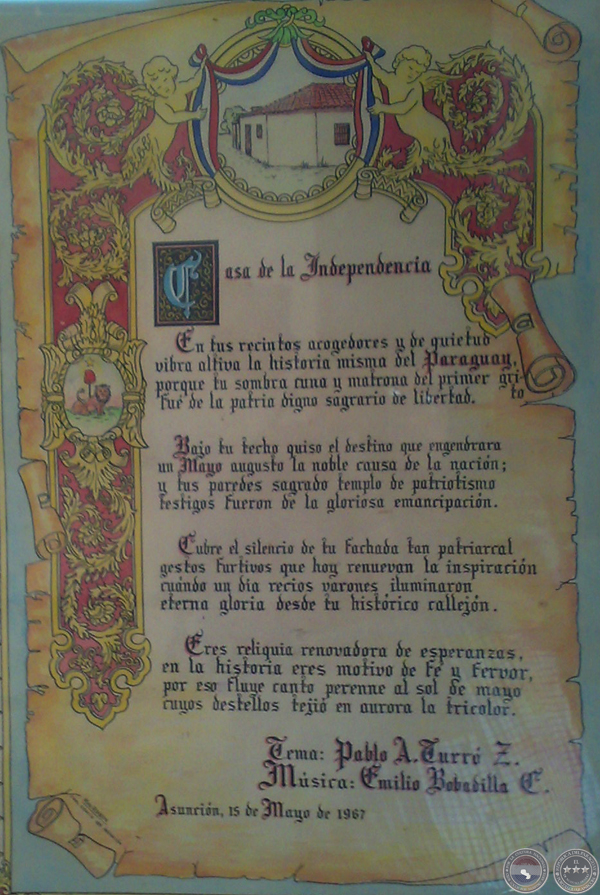 Casa de la Independencia
En tus recintos acogedores y de quietud
vibra altiva la historia misma del Paraguay,
porque tu sombra cuna y matrona del primer grito
fué de la patria digno sagrario de libertad.
Bajo tu techo quiso el destino que engendrara
un Mayo augusto la noble causa de la nación;
y tus paredes sagrado templo de patriotismo
testigos fueron de la gloriosa emancipación.
Cubre el silencio de tu fachada tan patriarcal
gestos furtivos que hoy renuevan la inspiración
cuándo un día recios varones iluminaron
eterna gloria desde tu histórico callejón.
Eres reliquia renovadora de esperanzas,
en la historia eres motivo de fé y fervor,
por eso fluye canto perenne al sol de mayo
cuyos destellos tejió en aurora la tricolor.
Tema: Pablo A. Turró Z.
Música: Emilio Bobadilla C.
Asunción, 15 de Mayo de 1967